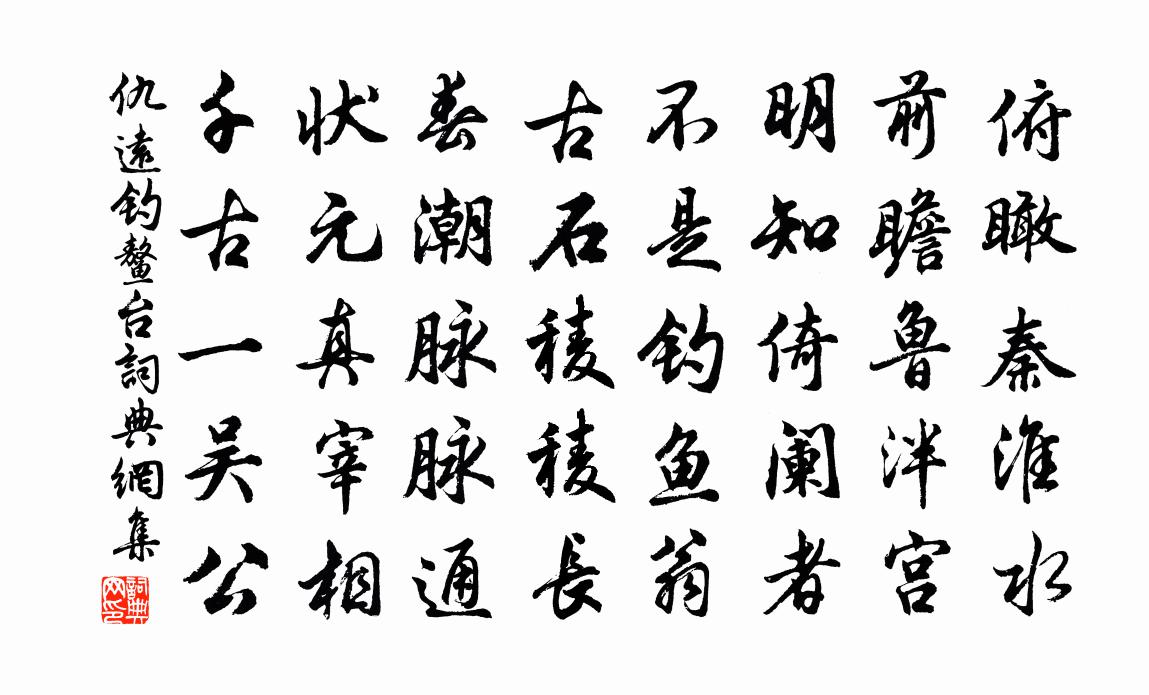 俯瞰秦淮水
前瞻鲁泮宫
明知倚阑者
不是钓鱼翁
古石稜稜长
春潮脉脉通
状元真宰相
千古一吴公
仇遠钓鳌台詞典網集
詞典网印